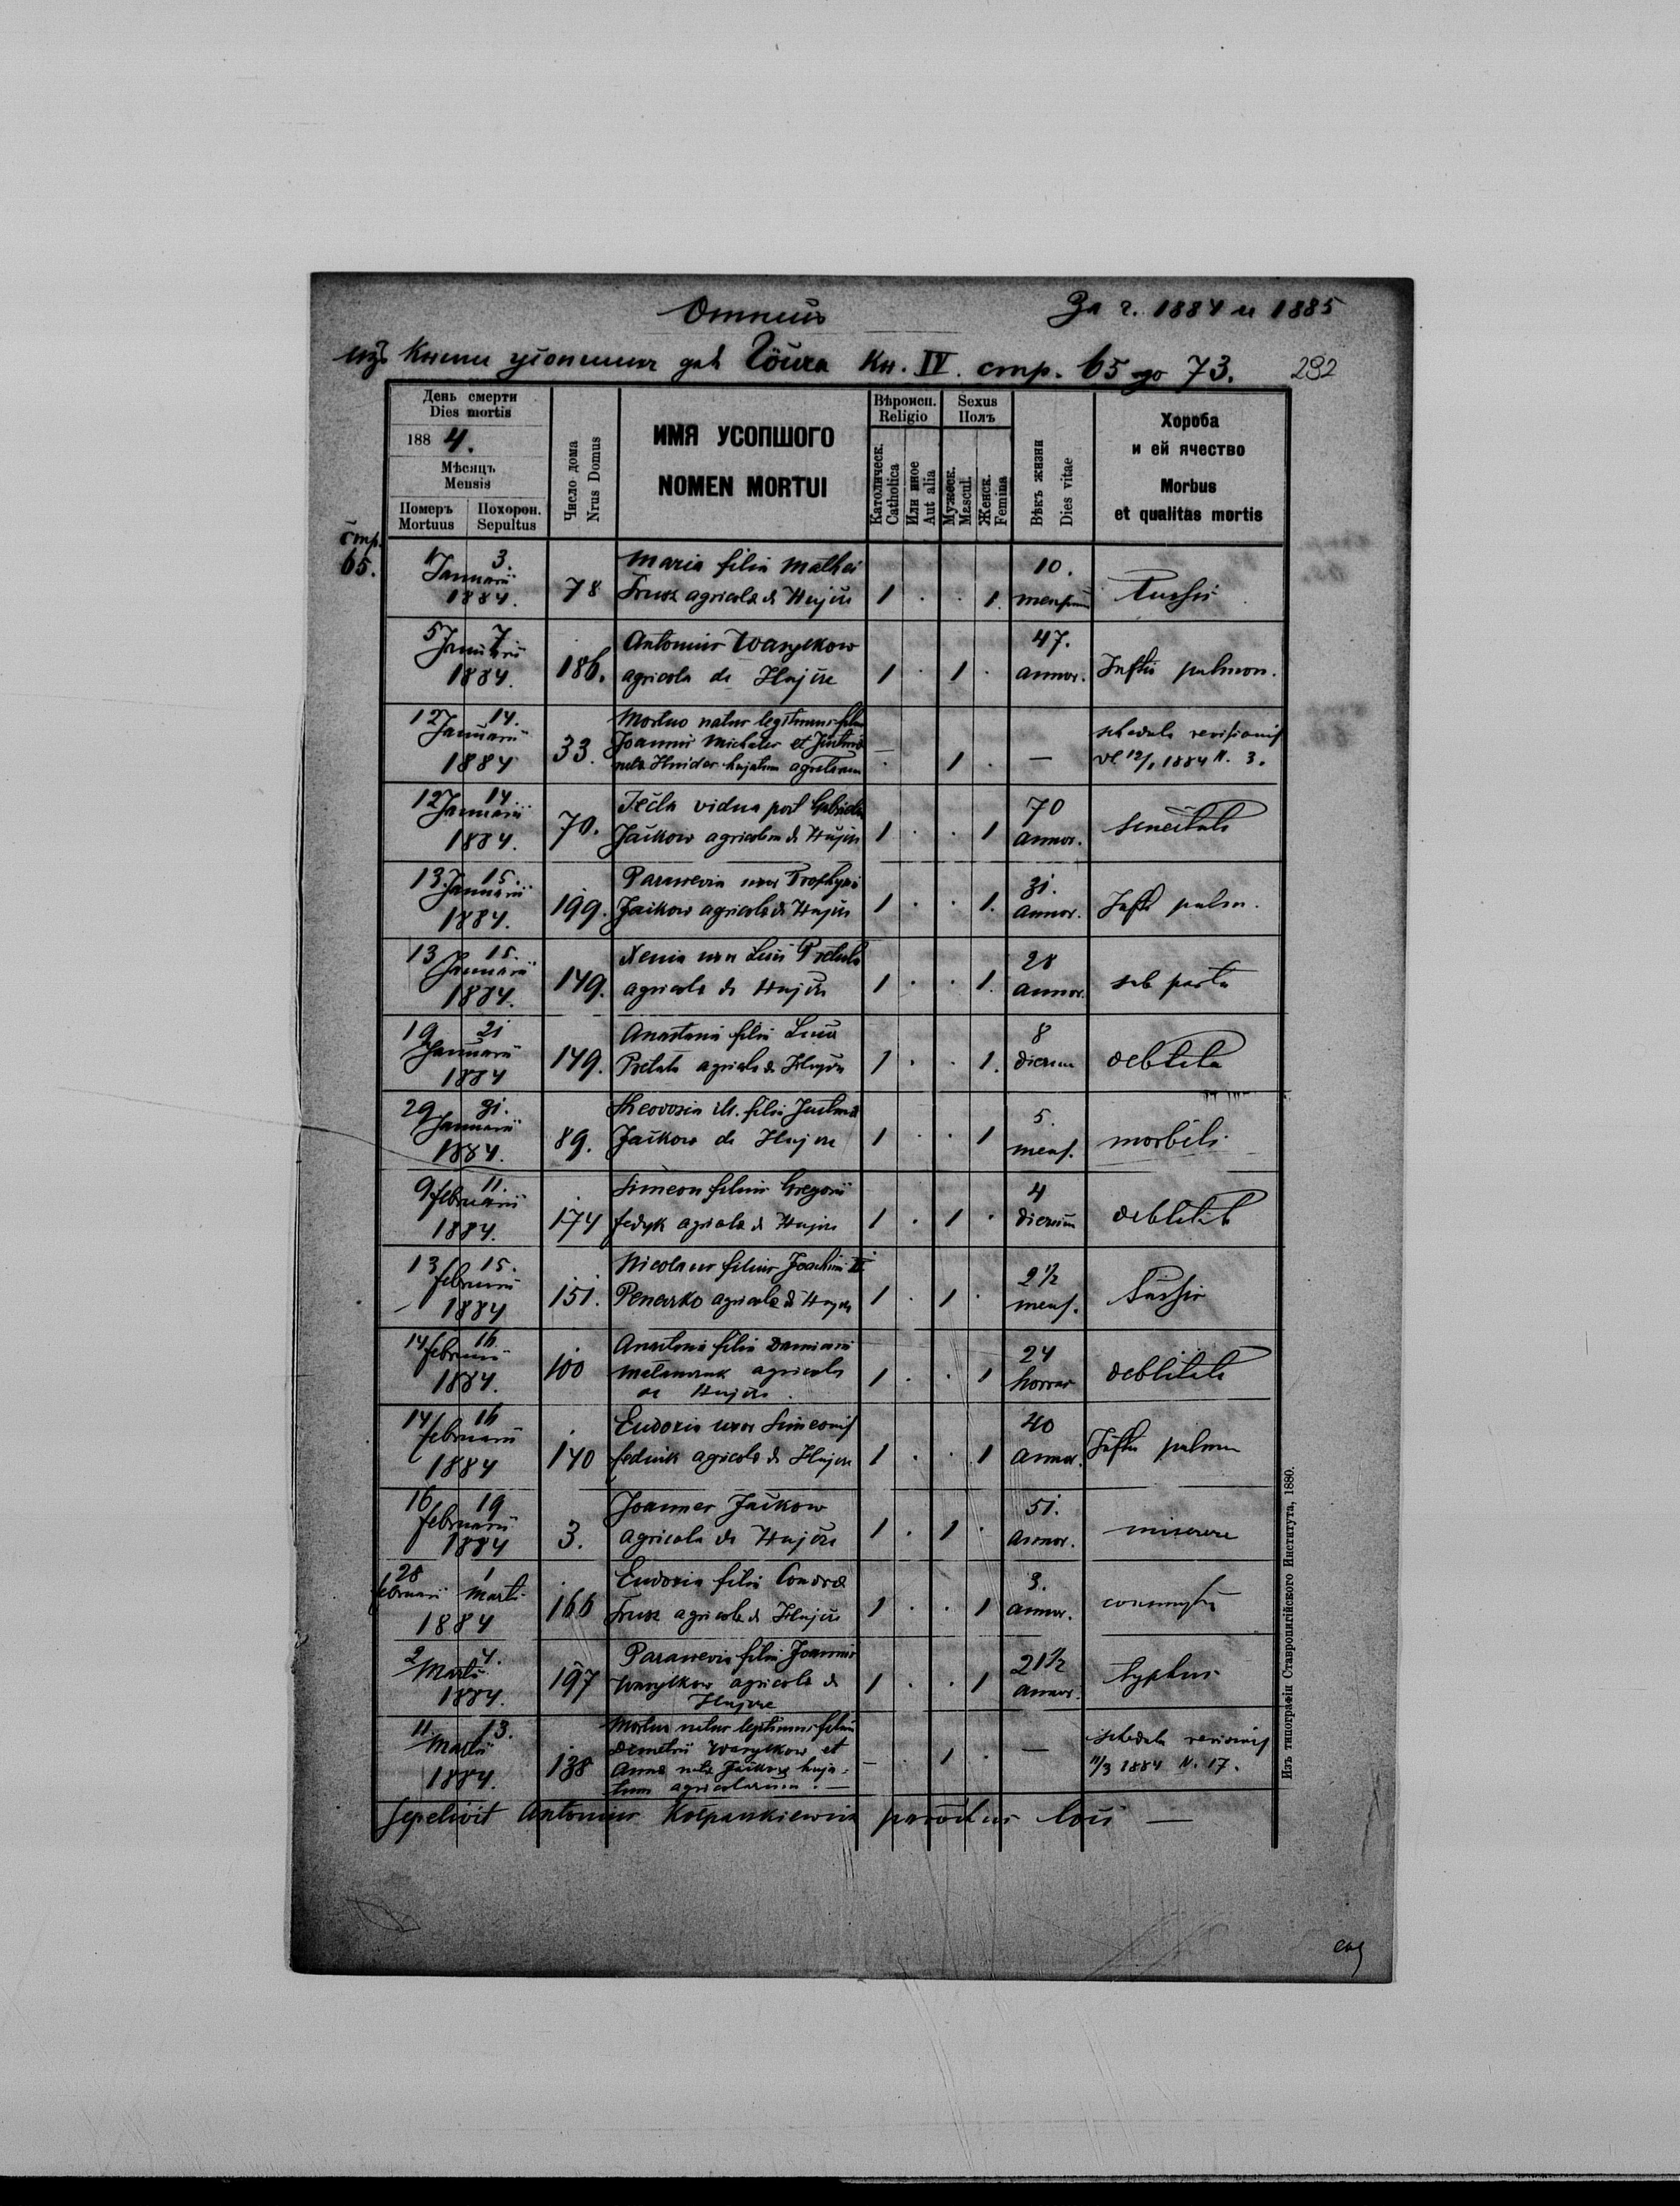 За г. 1884 и 1885
изъ Книги усопшихъ для Гойча Кн. IV. стр. 65 до 73.
292
День смерти
Dies mortis
1884.
Мѣсяцъ
Mensis
Померъ Mortuus
Похорон. Sepultus
Число дома
Nrus Domus
ИМЯ УСОПШОГО
NOMEN MORTUI
Вѣроисп.
Religio
Католическ.
Catholica
Или иное
Aut alia
Sexus
Полъ
Мужеск.
Mascul.
Женск.
Femina
Вѣкъ жизни
Dies vitae
Хороба
и ей ячество
Morbus
et qualitas mortis
стр.
65.
1 3. Januarii 1884. 78 Maria filia Mathei
Frusz agricola de Hujcze 1 . . 1. 10. mensium Tussis
5 7 Januarii 1884. 186. Antonius Wasylkow
agricola de Hujcze 1 . 1 . 47. annor. pulmon.
12 14. Januarii 1884 33. Mortuo natus legitimus filius
Joannis Michalus et Justina
nata Hnidar hujatum agricolarum — . 1 . — schedula revisionis
12/1 1884 N. 3.
12 14 Januarii 1884. 70. Tecla vidua post Gabriele
Jackow agricolam de Hujcze 1 . . 1 70 annor. senectute
13. 15. Januarii 1884. 199. Parascevia uxor
Jackow agricola de Hujcze 1 . . 1. 31. annor. pulm.
13 15. Januarii 1884. 149. Xenia uxor Luci
agricola de Hujcze 1 . . 1. 28 annor. sub partu
19 21 Januarii 1884 149. Anastasia filia Luca
agricola de Hujcze 1 . . 1. 8 dierum debilita
29 31. Januarii 1884. 89. Theodosia ill. filia Justina
Jackow de Hujcze 1 . . 1 5. mens. morbili
9 11. februarii 1884. 174 Simeon filius Gregorii
fedyk agricola de Hujcze 1 . 1 . 4 dierum debilitate
13 15. februarii 1884 151. Nicolaus filius Joachimi
agricola de Hujcze 1 . 1 . 2 1/2 mens. Tussis
14 16 februarii 1884. 100 Anastasia filia Damiani
agricola
de Hujcze 1 . . 1 24 horras debilitate
14 16 februarii 1884 140 Eudoxia uxor Simeonis
agricola de Hujcze 1 . . 1 40 annor. pulmon
16 19 februarii 1884 3. Joannes Jackow
agricola de Hujcze 1 . 1 . 51. annor. miserere
28 februarii 1 Marti 1884 166 Eudoxia filia
Frusz agricola de Hujcze 1 . . 1 3. annor.
2 4. Martii 1884. 197 Parascevia filia Joannis
Wasylkow agricola de
Hujcze 1 . . 1 21 1/2 annor. typhus
11. 13. Martii 1884. 138 Mortuo natus legitimus filius
Demetrii Wasylkow et
Anna nata Jackow huja-
tum agricolarum. — — . 1 . — schedula revisionis
11/3 1884 N. 17.
Sepelivit Antonius parochus loci —
Изъ типографіи Ставропигійского Института, 1880.